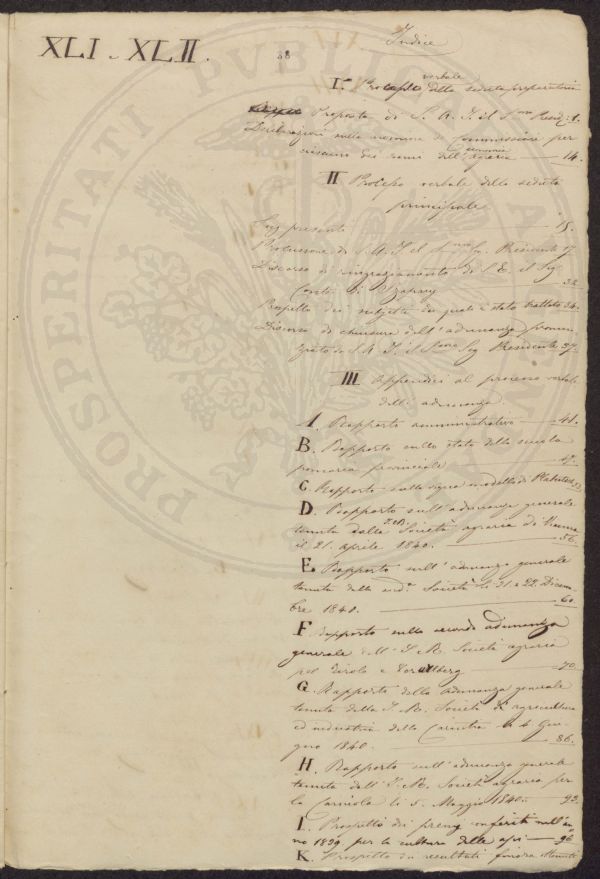 XLI e XLII.
38
Indice
I.o Processo verbale della seduta preparatoria
Proposta di S. A. I. il Smo Presid: 1.
Deliberazioni sulla nomina di Commissioni per
ciascuno dei rami dell'economia agraria 14.
II Processo verbale della seduta
principale
presenti 15.
Prolusione di S.A.I. il Smo Sr. Presidente 17
Discorso di ringraziamento di S. E. il Sig
Conte di 32
Prospetto dei subjetti dei quali è stato trattato 34.
Discorso di chiusura dell'adunanza pronun-
ziato da S. A. I. il Smo Sig Presidente 37.
III Appendici al processo verbale
dell'adunanza
A. Rapporto amministrativo 41.
B. Rapporto sullo stato della scuola
pomaria provinciale 47.
C. Rapporto sulla vigna modello di
D. Rapporto sull'adunanza generale
tenuta dalla I.R. Società agraria di Vienna
il 21. Aprile 1840. 56.
E. Rapporto sull'adunanza generale
tenuta dalla sud.a Società li 21 e 22. Dicem-
bre 1840. 60.
F Rapporto sulla seconda adunanza
generale dell'I. R. Società agraria
pel Tirolo e Vorarlberg 70.
G. Rapporto della adunanza generale
tenuta dalla I. R. Società di agricoltura
ed industria della Carintia li 4. Giu-
gno 1840. 86.
H. Rapporto sull'adunanza generale
tenuta dall'I. R. Società agraria per
la Carniola li 5. Maggio 1840. 93.
I. Prospetto dei premj conferiti nell'an
no 1839 per la cultura delle api 96
K. Prospetto dei resultati finora ottenuti
PROSPERITATI PUBLICAE